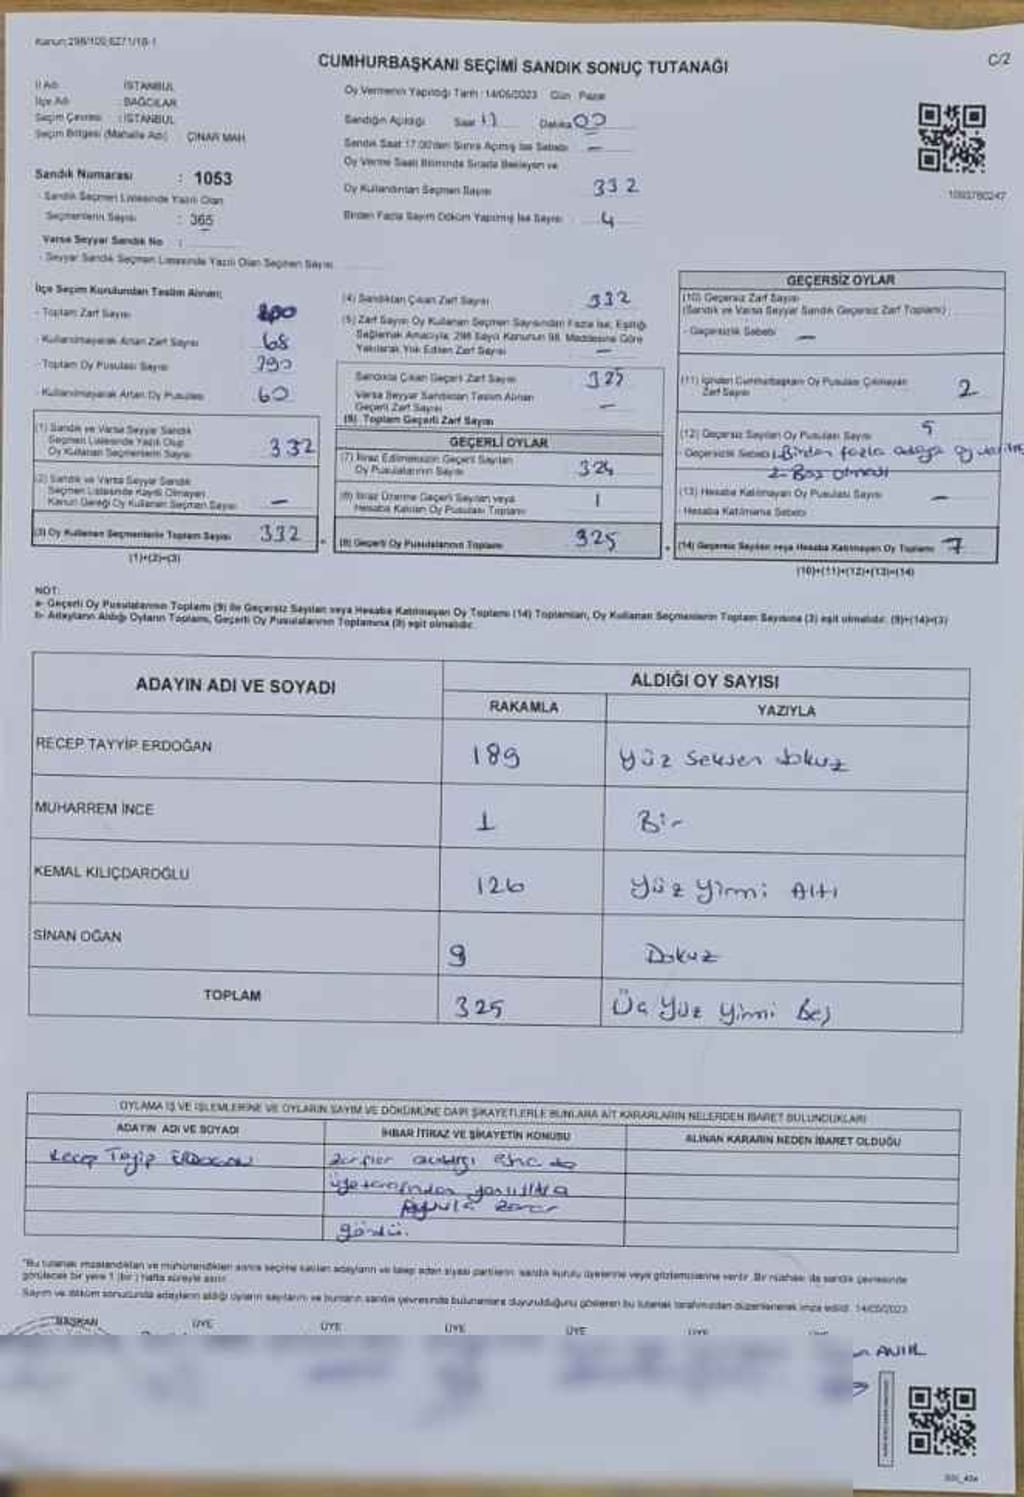 Kanun:298/105,6271/18-1
C/2
CUMHURBAŞKANI SEÇİMİ SANDIK SONUÇ TUTANAĞI
İl Adı : İSTANBUL
İlçe Adı : BAĞCILAR
Seçim Çevresi : İSTANBUL
Seçim Bölgesi (Mahalle Adı) ÇINAR MAH.
Sandık Numarası : 1053
- Sandık Seçmen Listesinde Yazılı Olan
Seçmenlerin Sayısı : 365
Varsa Seyyar Sandık No :
- Seyyar Sandık Seçmen Listesinde Yazılı Olan Seçmen Sayısı
Oy Vermenin Yapıldığı Tarih :14/05/2023 Gün Pazar
Sandığın Açıldığı Saat 17 Dakika 00
Sandık Saat 17.00'den Sonra Açılmış İse Sebebi —
Oy Verme Saati Bitiminde Sırada Bekleyen ve
Oy Kullandırılan Seçmen Sayısı 332
Birden Fazla Sayım Döküm Yapılmış İse Sayısı 4
1093760247
İlçe Seçim Kurulundan Teslim Alınan;
- Toplam Zarf Sayısı 400
- Kullanılmayarak Artan Zarf Sayısı 68
- Toplam Oy Pusulası Sayısı 390
- Kullanılmayarak Artan Oy Pusulası 60
(1) Sandık ve Varsa Seyyar Sandık
Seçmen Listesinde Yazılı Olup
Oy Kullanan Seçmenlerin Sayısı 332
(2) Sandık ve Varsa Seyyar Sandık
Seçmen Listesinde Kayıtlı Olmayan
Kanun Gereği Oy Kullanan Seçmen Sayısı —
(3) Oy Kullanan Seçmenlerin Toplam Sayısı 332
(1)+(2)=(3)
(4) Sandıktan Çıkan Zarf Sayısı 332
(5) Zarf Sayısı Oy Kullanan Seçmen Sayısından Fazla İse, Eşitliği
Sağlamak Amacıyla, 298 Sayılı Kanunun 98. Maddesine Göre
Yakılarak Yok Edilen Zarf Sayısı —
Sandıkta Çıkan Geçerli Zarf Sayısı 325
Varsa Seyyar Sandıktan Teslim Alınan
Geçerli Zarf Sayısı —
(6) Toplam Geçerli Zarf Sayısı
GEÇERLİ OYLAR
(7) İtiraz Edilmeksizin Geçerli Sayılan
Oy Pusulalarının Sayısı 324
(8) İtiraz Üzerine Geçerli Sayılan veya
Hesaba Katılan Oy Pusulası Toplamı 1
(9) Geçerli Oy Pusulalarının Toplamı 325
GEÇERSİZ OYLAR
(10) Geçersiz Zarf Sayısı
(Sandık ve Varsa Seyyar Sandık Geçersiz Zarf Toplamı)
- Geçersizlik Sebebi —
(11) İçinden Cumhurbaşkanı Oy Pusulası Çıkmayan
Zarf Sayısı 2
(12) Geçersiz Sayılan Oy Pusulası Sayısı 5
- Geçersizlik Sebebi 1-Birden fazla adaya oy
2-Boş olması
(13) Hesaba Katılmayan Oy Pusulası Sayısı —
- Hesaba Katılmama Sebebi
(14) Geçersiz Sayılan veya Hesaba Katılmayan Oy Toplamı 7
(10)+(11)+(12)+(13)=(14)
NOT:
a- Geçerli Oy Pusulalarının Toplamı (9) ile Geçersiz Sayılan veya Hesaba Katılmayan Oy Toplamı (14) Toplamları, Oy Kullanan Seçmenlerin Toplam Sayısına (3) eşit olmalıdır. (9)+(14)=(3)
b- Adayların Aldığı Oyların Toplamı, Geçerli Oy Pusulalarının Toplamına (9) eşit olmalıdır.
ADAYIN ADI VE SOYADI
ALDIĞI OY SAYISI
RAKAMLA YAZIYLA
RECEP TAYYİP ERDOĞAN 189 Yüz Seksen dokuz
MUHARREM İNCE 1 Bir
KEMAL KILIÇDAROĞLU 126 Yüz Yirmi Altı
SİNAN OĞAN 9 Dokuz
TOPLAM 325 Üç Yüz Yirmi Beş
OYLAMA İŞ VE İŞLEMLERİNE VE OYLARIN SAYIM VE DÖKÜMÜNE DAİR ŞİKAYETLERLE BUNLARA AİT KARARLARIN NELERDEN İBARET BULUNDUKLARI
ADAYIN ADI VE SOYADI İHBAR İTİRAZ VE ŞİKAYETİN KONUSU ALINAN KARARIN NEDEN İBARET OLDUĞU
Recep Tayip ERDOĞAN
gördü.
*Bu tutanak imzalandıktan ve mühürlendikten sonra seçime katılan adayların ve talep eden siyasi partilerin sandık kurulu üyelerine veya gözlemcilerine verilir. Bir nüshası da sandık çevresinde
görülecek bir yere 1 (bir) hafta süreyle asılır.
Sayım ve döküm sonucunda adayların aldığı oyların sayılarını ve bunların sandık çevresinde bulunanlara duyurulduğunu gösteren bu tutanak tarafımızdan düzenlenerek imza edildi. 14/05/2023
BAŞKAN ÜYE ÜYE ÜYE ÜYE ÜYE ÜYE
ANIL